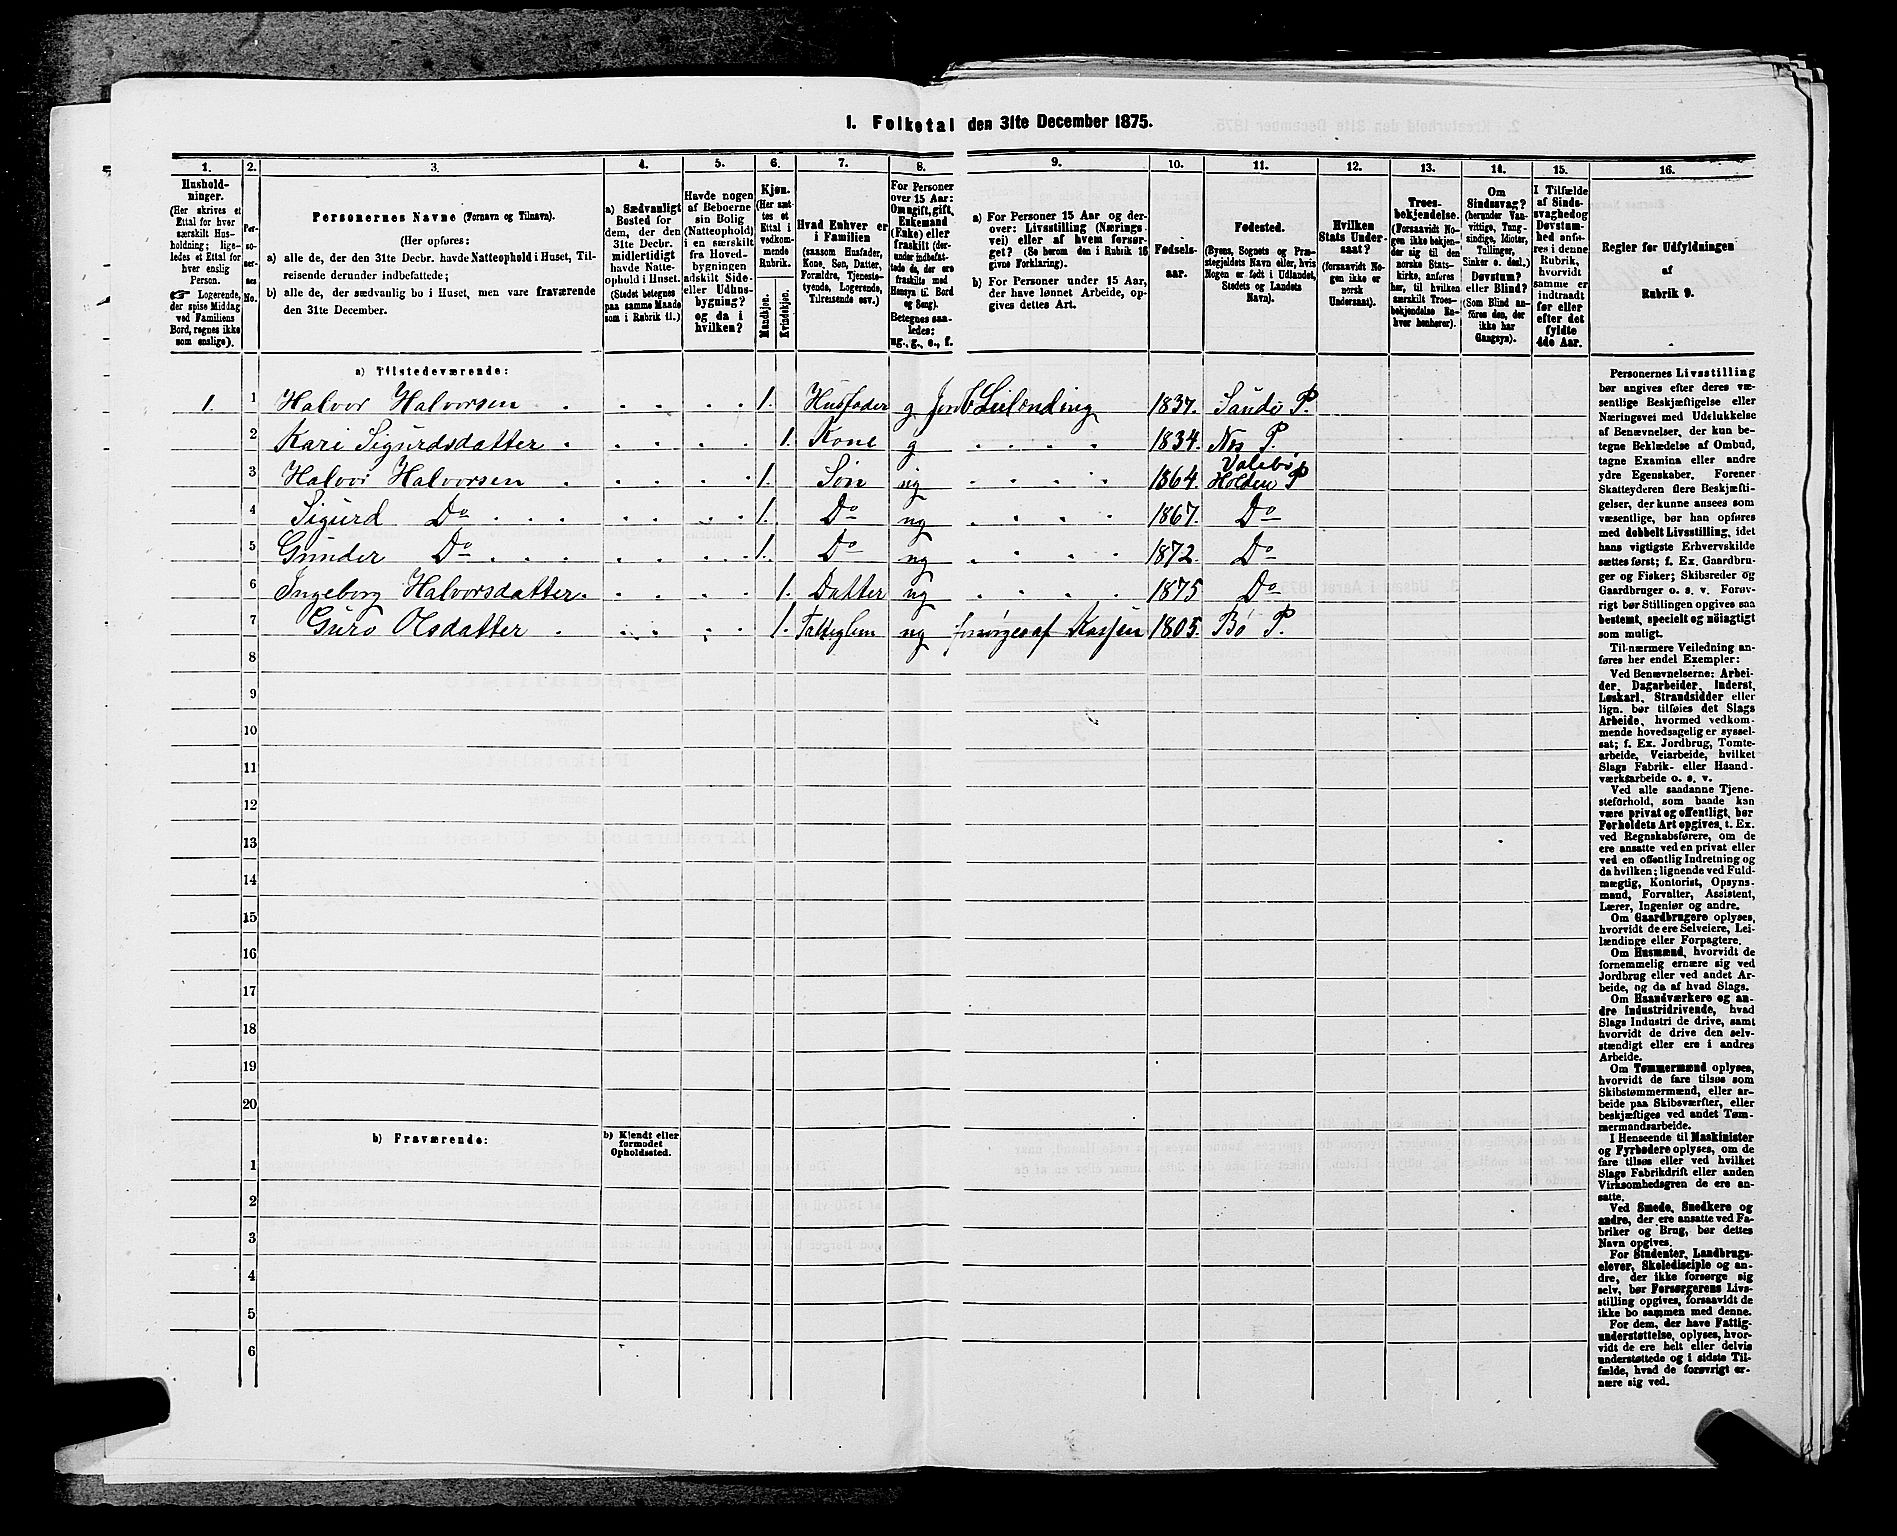 1. Folketal den 31te December 1875.
1. 2. 3. 4. 5. 6. 7. 8. 9. 10. 11. 12. 13. 14. 15. 16.
Hushold-
ninger.
(Her skrives et
Ettal for hver
særskilt Hus-
holdning; lige-
ledes et Ettal for
hver enslig
Person.
☞ Logerende,
der spise Middag
ved Familiens
Bord, regnes ikke
som enslige).
Per-
so-
ner-
nes
No.
Personernes Navne (Fornavn og Tilnavn).
(Her opføres:
a) alle de, der den 31te Decbr. havde Natteophold i Huset, Til-
reisende derunder indbefattede;
b) alle de, der sædvanlig bo i Huset, men vare fraværende
den 31te December.
a) Sædvanligt
Bosted for
dem, der den
31te Decbr.
midlertidigt
havde Natte-
ophold i Huset.
(Stedet betegnes
paa samme Maade
som i Rubrik 11.)
Havde nogen
af Beboerne
sin Bolig
(Natteophold)
i en særskilt
fra Hoved-
bygningen
adskilt Side-
eller Udhus-
bygning?
og da i
hvilken?
Kjøn.
(Her sæt-
tes et
Ettal i
vedkom-
mende
Rubrik.
Mandkjøn.
Kvindekjøn.
Hvad Enhver er
i Familien
(saasom Husfader,
Kone, Søn, Datter,
Forældre, Tjeneste-
tyende, Logerende,
Tilreisende osv.)
For Personer
over 15 Aar:
Om ugift, gift,
Enkemand
(Enke) eller
fraskilt (der-
under indbefat-
tede de, der ere
fraskilte med
Hensyn til Bord
og Seng).
Betegnes saa-
ledes:
ug., g., e., f.
a) For Personer 15 Aar og der-
over: Livsstilling (Nærings-
vei) eller af hvem forsør-
get? (Se herom den i Rubrik 16
givne Forklaring).
b) For Personer under 15 Aar,
der have lønnet Arbeide, op-
gives dettes Art.
Fødsels-
aar.
Fødested.
(Byens, Sognets og Præ-
stegjeldets Navn eller, hvis
Nogen er født i Udlandet,
Stedets og Landets
Navn).
Hvilken
Stats Under-
saat?
(forsaavidt No-
gen ikke er
norsk
Undersaat).
Troes-
bekjendelse.
(Forsaavidt No-
gen ikke bekjen-
der sig til den
norske Stats-
kirke, anføres
her, til hvilken
særskilt Troes-
bekjendelse En-
hver henhører).
Om
Sindssvag?
(herunder Van-
vittige, Tung-
sindige, Idioter,
Tullinger,
Sinker o. desl.)
Døvstum?
eller Blind?
(Som Blind an-
føres den, der
ikke har
Gangsyn).
I Tilfælde
af Sinds-
svaghed og
Døvstum-
hed anfø-
res i denne
Rubrik,
hvorvidt
samme er
indtraadt
før eller
efter det
fyldte
4de Aar.
Regler for Udfyldningen
af
Rubrik 9.
a) Tilstedeværende:
1. 1 Halvor Halvorsen 1. Husfader g Leilænding 1837. Sande P.
2 Kari Sigurdsdatter 1. Kone g 1834. Næs P.
3 Halvor Halvorsen 1. Søn ug 1864. Valebø Holden P
4 Sigurd Do 1. Do ug 1867. Do
5 Gunder Do 1. Do ug 1872. Do
6 Ingeborg Halvorsdatter. 1. Datter ug 1875 Do
7 Guro Olsdatter 1. Fattiglem ug forsørges af Kassen 1805. Bø P.
8
9
10
11
12
13
14
15
16
17
18
19
20
b) Fraværende:
b) Kjendt eller
formodet
Opholdssted.
1
2
3
4
5
6
Personernes Livsstilling
bør angives efter deres væ-
sentlige Beskjæftigelse eller
Næringsvei med Udelukkelse
af Benævnelser, der kun be-
tegne Beklædelse af Ombud,
tagne Examina eller andre
ydre Egenskaber. Forener
Skatteyderen flere Beskjæfti-
gelser, der kunne ansees som
væsentlige, bør han opføres
med dobbelt Livsstilling, idet
hans vigtigste Erhvervskilde
sættes først; f. Ex. Gaardbru-
ger og Fisker; Skibsreder og
Gaardbruger o. s. v. Forøv-
rigt bør Stillingen opgives saa
bestemt, specielt og nøiagtigt
som muligt.
Til nærmere Veiledning an-
føres her endel Exempler:
Ved Benævnelserne: Arbei-
der, Dagarbeider, Inderst,
Løskarl, Strandsidder eller
lign. bør tilføies det Slags
Arbeide, hvormed vedkom-
mende hovedsagelig er syssel-
sat; f. Ex. Jordbrug, Tomte-
arbeide, Veiarbeide, hvilket
Slags Fabrik- eller Haand-
værksarbeide o. s. v.
Ved alle saadanne Tjene-
steforhold, som baade kan
være privat og offentligt, bør
Forholdets Art opgives, t. Ex.
ved Regnskabsførere, om de
ere ansatte ved en privat eller
ved en offentlig Indretning og
da hvilken; lignende ved Fuld-
mægtig, Kontorist, Opsyns-
mand, Forvalter, Assistent,
Lærer, Ingeniør og andre.
Om Gaardbrugere oplyses,
hvorvidt de ere Selveiere, Lei-
lændinge eller Forpagtere.
Om Husmænd, hvorvidt de
fornemmelig ernære sig ved
Jordbrug eller ved andet Ar-
beide, og da af hvad Slags.
Om Haandværkere og an-
dre Industridrivende, hvad
Slags Industri de drive, samt
hvorvidt de drive den selv-
stændigt eller ere i andres
Arbeide.
Om Tømmermænd oplyses,
hvorvidt de fare tilsøs som
Skibstømmermænd, eller ar-
beide paa Skibsværfter, eller
beskjæftiges ved andet Tøm-
mermandsarbeide.
I Henseende til Maskinister
og Fyrbødere oplyses, om de
fare tilsøs eller ved hvilket
Slags Fabrikdrift eller anden
Virksomhedsgren de ere an-
satte.
Ved Smede, Snedkere og
andre, der ere ansatte ved Fa-
briker og Brug, bør dettes
Navn opgives.
For Studenter, Landbrugs-
elever, Skoledisciple og an-
dre, der ikke forsørge sig
selv, bør Forsørgerens Livs-
stilling opgives, forsaavidt de
ikke bo sammen med denne.
For dem, der have Fattig-
understøttelse, oplyses, hvor-
vidt de ere helt eller delvis
understøttede og i sidste Til-
fælde, hvad de forøvrigt er-
nære sig ved.